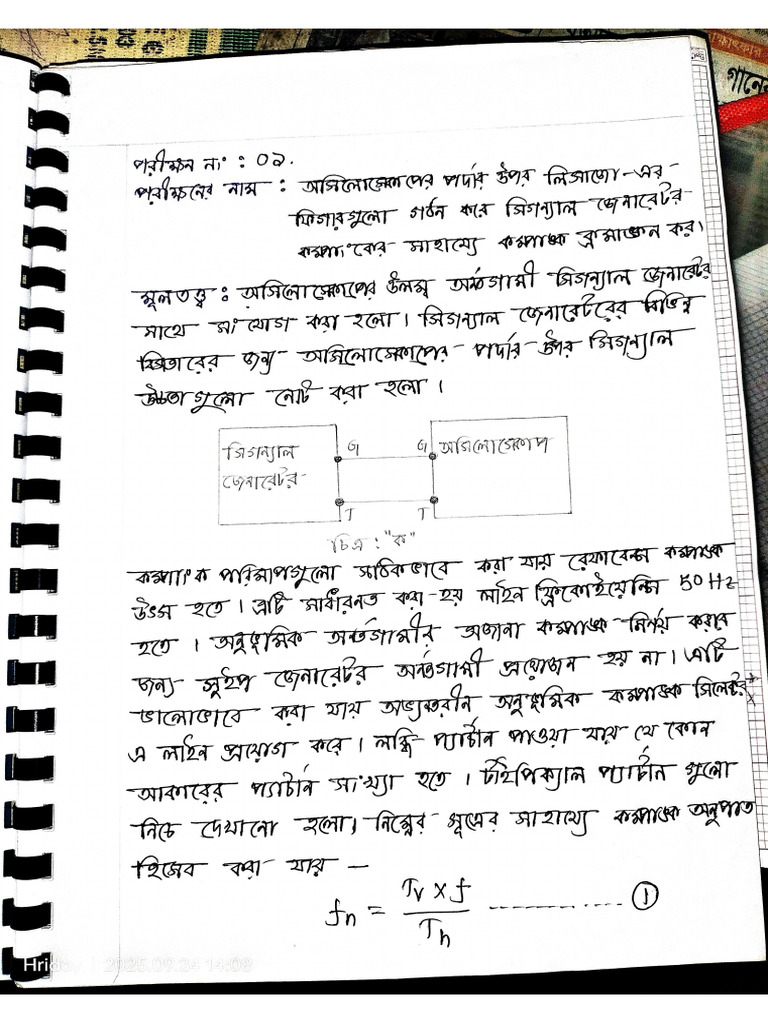 পরীক্ষন নং : ০১.
পরীক্ষনের নাম : অসিলোস্কোপের পর্দার উপর লিসাজো-এর
ফিগারগুলো গঠন করে সিগন্যাল জেনারেটর
কম্পাংকের সাহায্যে কম্পাঙ্ক ক্রমাঙ্কন কর।
মূলতত্ত্ব : অসিলোস্কোপের উলম্ব অর্ন্তগামী সিগন্যাল জেনারেটর
সাথে সংযোগ করা হলো। সিগন্যাল জেনারেটরের বিভিন্ন
বিস্তারের জন্য অসিলোস্কোপের পর্দার উপর সিগন্যাল
উচ্চতাগুলো নোট করা হলো।
সিগন্যাল
জেনারেটর
G
G
অসিলোস্কোপ
T
T
চিত্র : "ক"
কম্পাংক পরিমাপগুলো সঠিকভাবে করা যায় রেফারেন্স কম্পাঙ্ক
উৎস হতে। এটি সাধারনত করা হয় লাইন ফ্রিকোইয়েন্সি 50 Hz
হতে। অনুভূমিক অর্ন্তগামীর অজানা কম্পাঙ্ক নির্ণয় করার
জন্য সুইপ জেনারেটর অর্ন্তগামী প্রয়োজন হয় না। এটি
ভালোভাবে করা যায় অভ্যন্তরীন অনুভূমিক কম্পাঙ্ক সিলেক্টর
এ লাইন প্রয়োগ করে। লব্ধি প্যাটার্ন পাওয়া যায় যে কোন
আকারের প্যাটার্ন সংখ্যা হতে। টাইপিক্যাল প্যাটার্ন গুলো
নিচে দেখানো হলো। নিম্নের সূত্রের সাহায্যে কম্পাঙ্ক অনুপাত
হিসেব করা যায় —
fn = Tv × f / Th ------------ ①
Hridoy | 2025.09.24 14:08